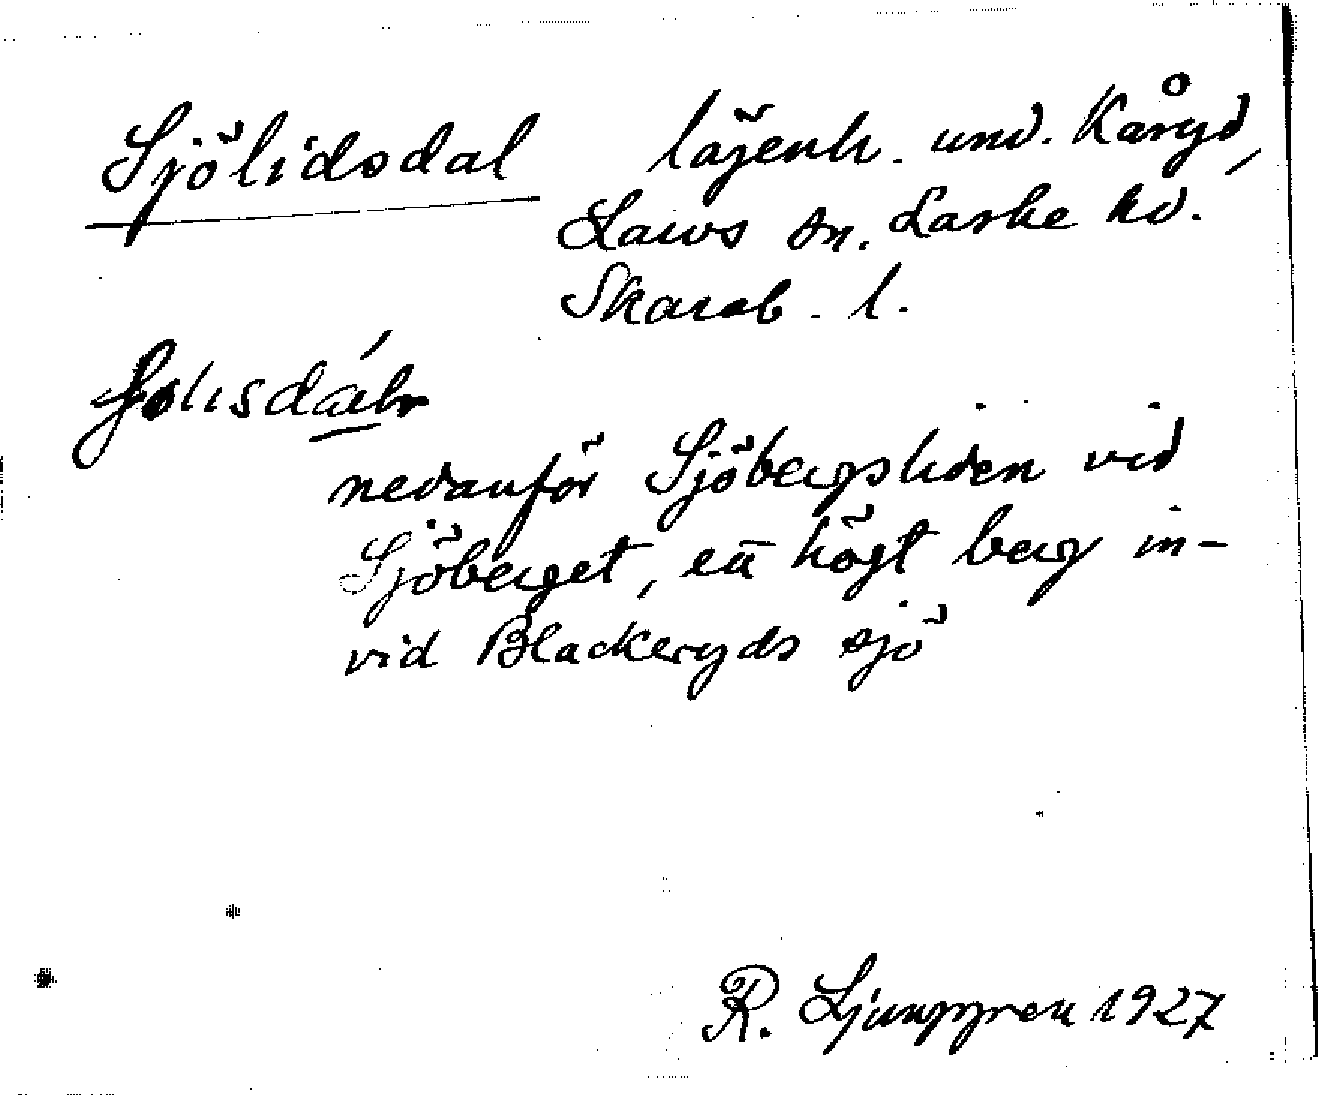 Sjölidsdal lägenh. und. Kåryd,
Larvs sn. Laske hd.
Skarab. l.
nedanför Sjöbergsliden vid
Sjöberget, ett högt berg in-
vid Blackeryds sjö
R. Ljunggren 1927